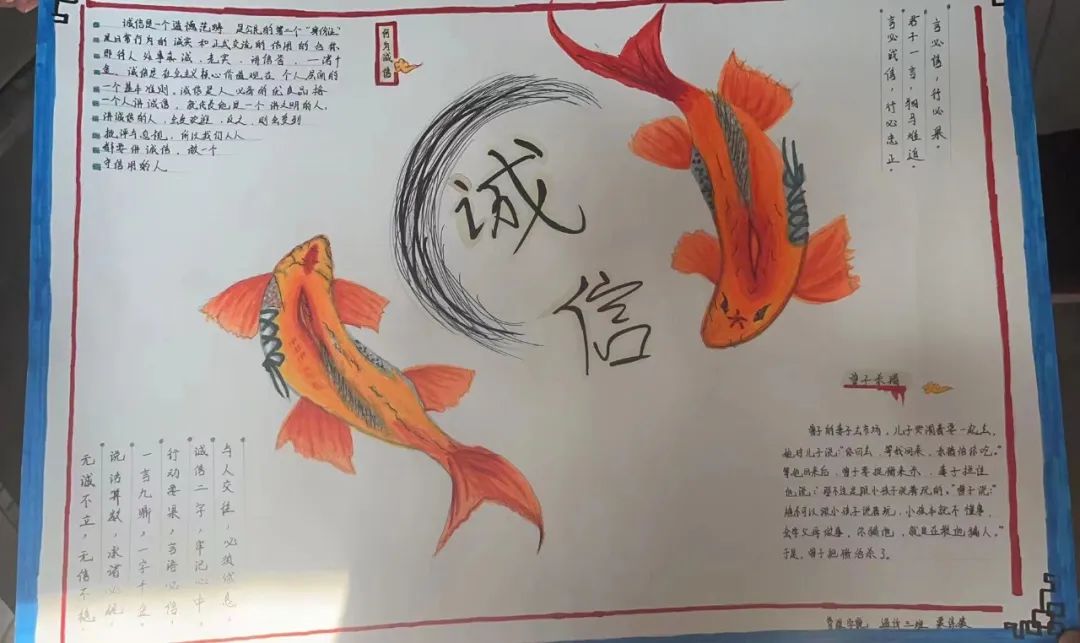 诚信是一个道德范畴 是公民的第二个"身份证"
是日常行为的诚实和正式交流的信用的合称
即待人处事真诚、老实、讲信誉、一诺千
金。诚信是社会主义核心价值观在个人层面的
一个基本准则。诚信是人必备的优良品格
一个人讲诚信，就代表他是一个讲文明的人。
讲诚信的人，处处欢迎，反之，则会受到
批评与忽视，所以我们人人
都要讲诚信，做一个
守信用的人
何为诚信
言必信，行必果。
君子一言，驷马难追。
言必诚信，行必忠正。
诚
信
曾子杀猪
曾子的妻子去市场，儿子哭闹着要一起去，
她对儿子说："你回去，等我回来，杀猪给你吃。"
等她回来后，曾子要捉猪来杀，妻子拦住
他说："那不过是跟小孩子说着玩的。"曾子说："
绝不可以跟小孩子说着玩，小孩本就不懂事，
会学父母做事，你骗他，就是在教他骗人。"
于是，曾子把猪给杀了。
与人交往，必须诚信，
诚信二字，牢记心中，
行动要果，言语必信，
一言九鼎，一字千金，
说话算数，承诺必
无诚不立，无信不
三班